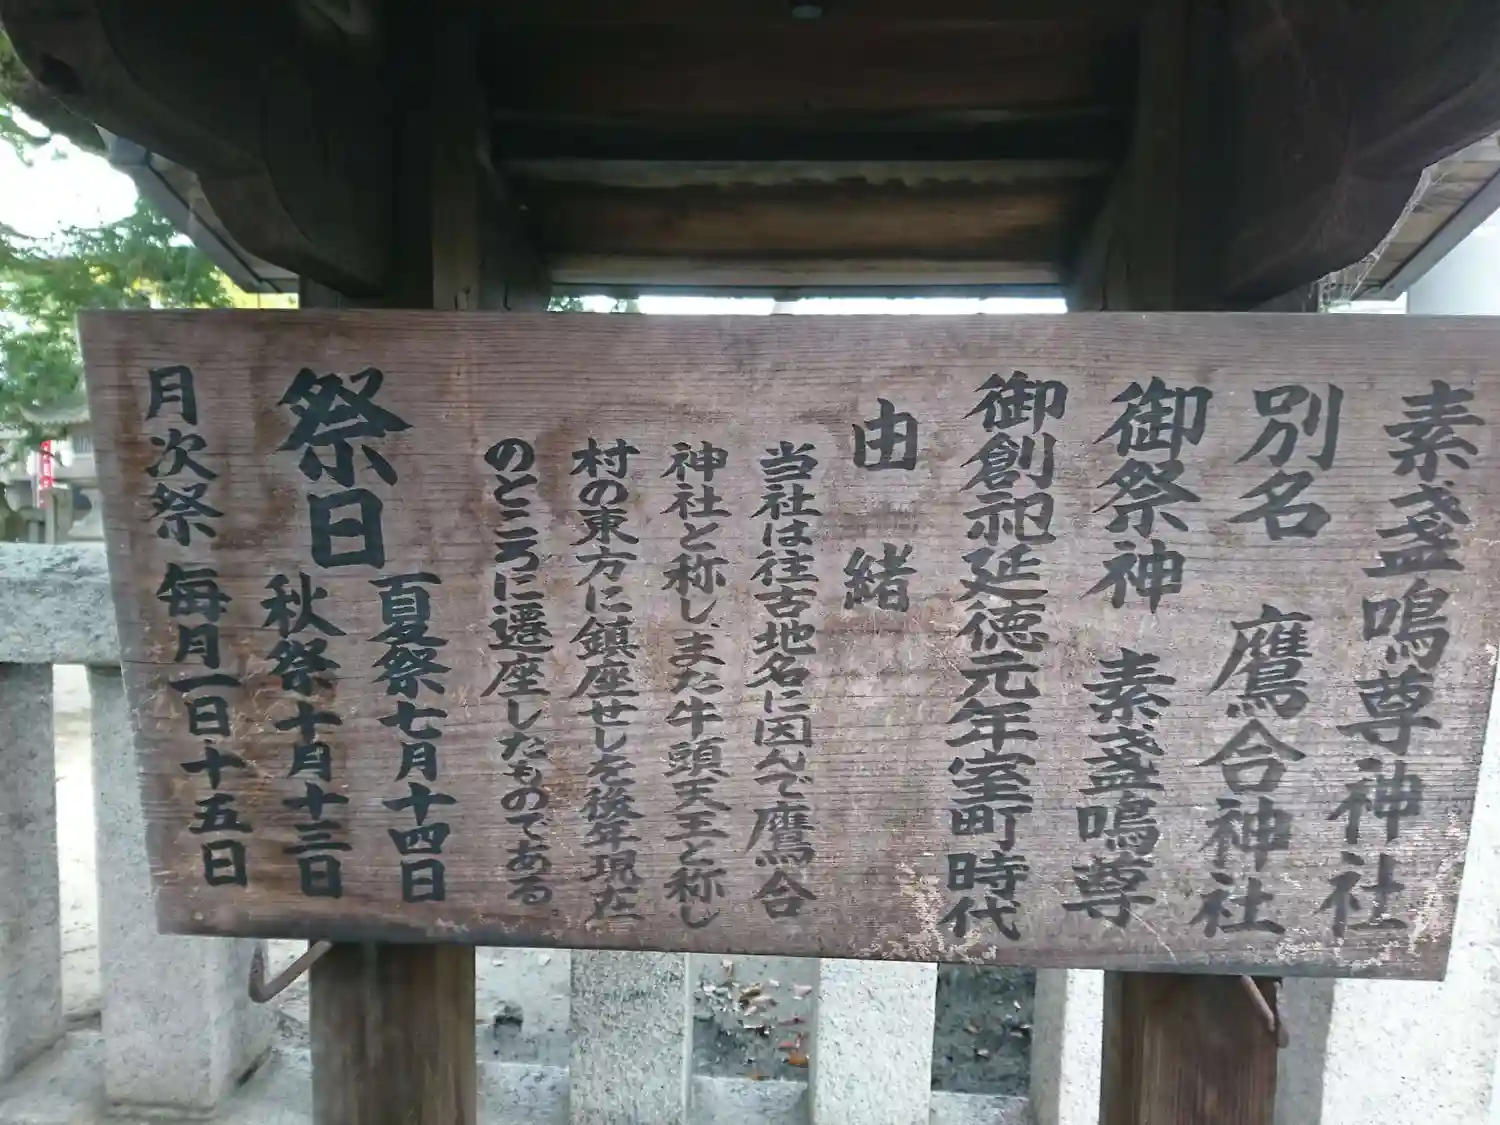 素盞嗚尊神社
別名 鷹合神社
御祭神 素盞嗚尊
御創祀延徳元年室町時代
由緒
当社は往古地名に因んで鷹合
神社と称し、また牛頭天王と称し
村の東方に鎮座せしを後年現在
のところに遷座したものである
祭日
夏祭七月十四日
秋祭十月十三日
月次祭 毎月一日十五日